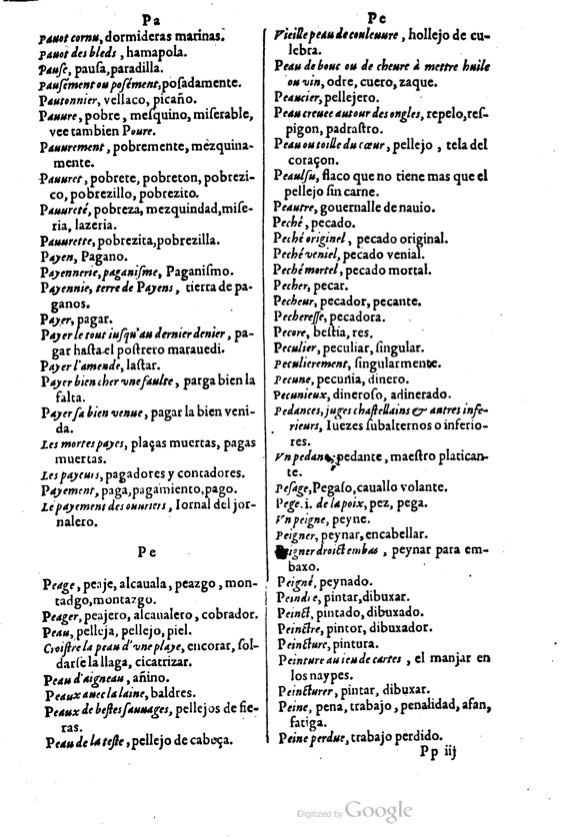 Pa
Pauot cornu, dormideras marinas.
Pauot des bleds, hamapola.
Pause, pauſa, paradilla.
Pausément ou posément, poſadamente.
Pautonnier, vellaco, picaño.
Pauure, pobre, meſquino, miſerable,
vee tambien Poure.
Pauurement, pobremente, mezquina-
mente.
Pauuret, pobrete, pobreton, pobrezi-
co, pobrezillo, pobrezito.
Pauureté, pobreza, mezquindad, miſe-
ria, lazeria.
Pauurette, pobrezita, pobrezilla.
Payen, Pagano.
Payennerie, paganiſme, Paganiſmo.
Payennie, terre de Payens, tierra de pa-
ganos.
Payer, pagar.
Payer le tout iuſqu'au dernier denier, pa-
gar haſta el poſtrero marauedi.
Payer l'amende, laſtar.
Payer bien cher vne faulte, parga bien la
falta.
Payer ſa bien venue, pagar la bien veni-
da.
Les mortes payes, plaças muertas, pagas
muertas.
Les payeurs, pagadores y contadores.
Payement, paga, pagamiento, pago.
Le payement des ouuriers, Iornal del jor-
nalero.
Pe
Peage, peaje, alcauala, peazgo, mon-
tadgo, montazgo.
Peager, peajero, alcaualero, cobrador.
Peau, pelleja, pellejo, piel.
Croiſtre la peau d'vne playe, encorar, ſol-
darſe la llaga, cicatrizar.
Peau d'aigneau, añino.
Peaux auec la laine, baldres.
Peaux de beſtes ſauuages, pellejos de fie-
ras.
Peau de la teſte, pellejo de cabeça.
Pe
Vieille peau de couleuure, hollejo de cu-
lebra.
Peau de bouc ou de cheure à mettre huile
ou vin, odre, cuero, zaque.
Peaucier, pellejero.
Peau creuee autour des ongles, repelo, reſ-
pigon, padraſtro.
Peau ou toille du cœur, pellejo, tela del
coraçon.
Peaulſu, flaco que no tiene mas que el
pellejo ſin carne.
Peautre, gouernalle de nauio.
Peché, pecado.
Peché originel, pecado original.
Peché veniel, pecado venial.
Peché mortel, pecado mortal.
Pecher, pecar.
Pecheur, pecador, pecante.
Pechereſſe, pecadora.
Pecore, beſtia, res.
Peculier, peculiar, ſingular.
Peculierement, ſingularmente.
Pecune, pecunia, dinero.
Pecunieux, dineroſo, adinerado.
Pedances, juges chaſtellains & autres infe-
rieurs, Iuezes ſubalternos o inferio-
res.
Vn pedant, pedante, maeſtro platican-
te.
Peſage, Pegaſo, cauallo volante.
Pege. i. de la poix, pez, pega.
Vn peigne, peyne.
Peigner, peynar, encabellar.
Peigner droict en bas, peynar para em-
baxo.
Peigné, peynado.
Peindre, pintar, dibuxar.
Peinct, pintado, dibuxado.
Peinctre, pintor, dibuxador.
Peincture, pintura.
Peinture au ieu de cartes, el manjar en
los naypes.
Peincturer, pintar, dibuxar.
Peine, pena, trabajo, penalidad, afan,
fatiga.
Peine perdue, trabajo perdido.
Pp iij
Digitized by Google